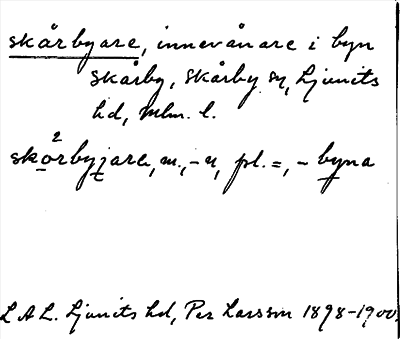 skårbyare, innevånare i byn
Skårby, Skårby sn, Ljunits
hd, Mlm. l.
2
skorbyjare, m., -n, pl. =, - byna
L A L. Ljunits hd, Per Larsson 1898-1900.